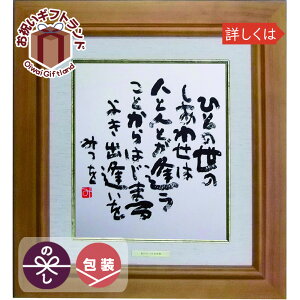 お祝いギフトランド
Oiwai Giftland
詳しくは
ひとの世の
しあわせは
人と人とが逢う
ことからはじまる
よき出逢いを
みつを
み
のし
包装